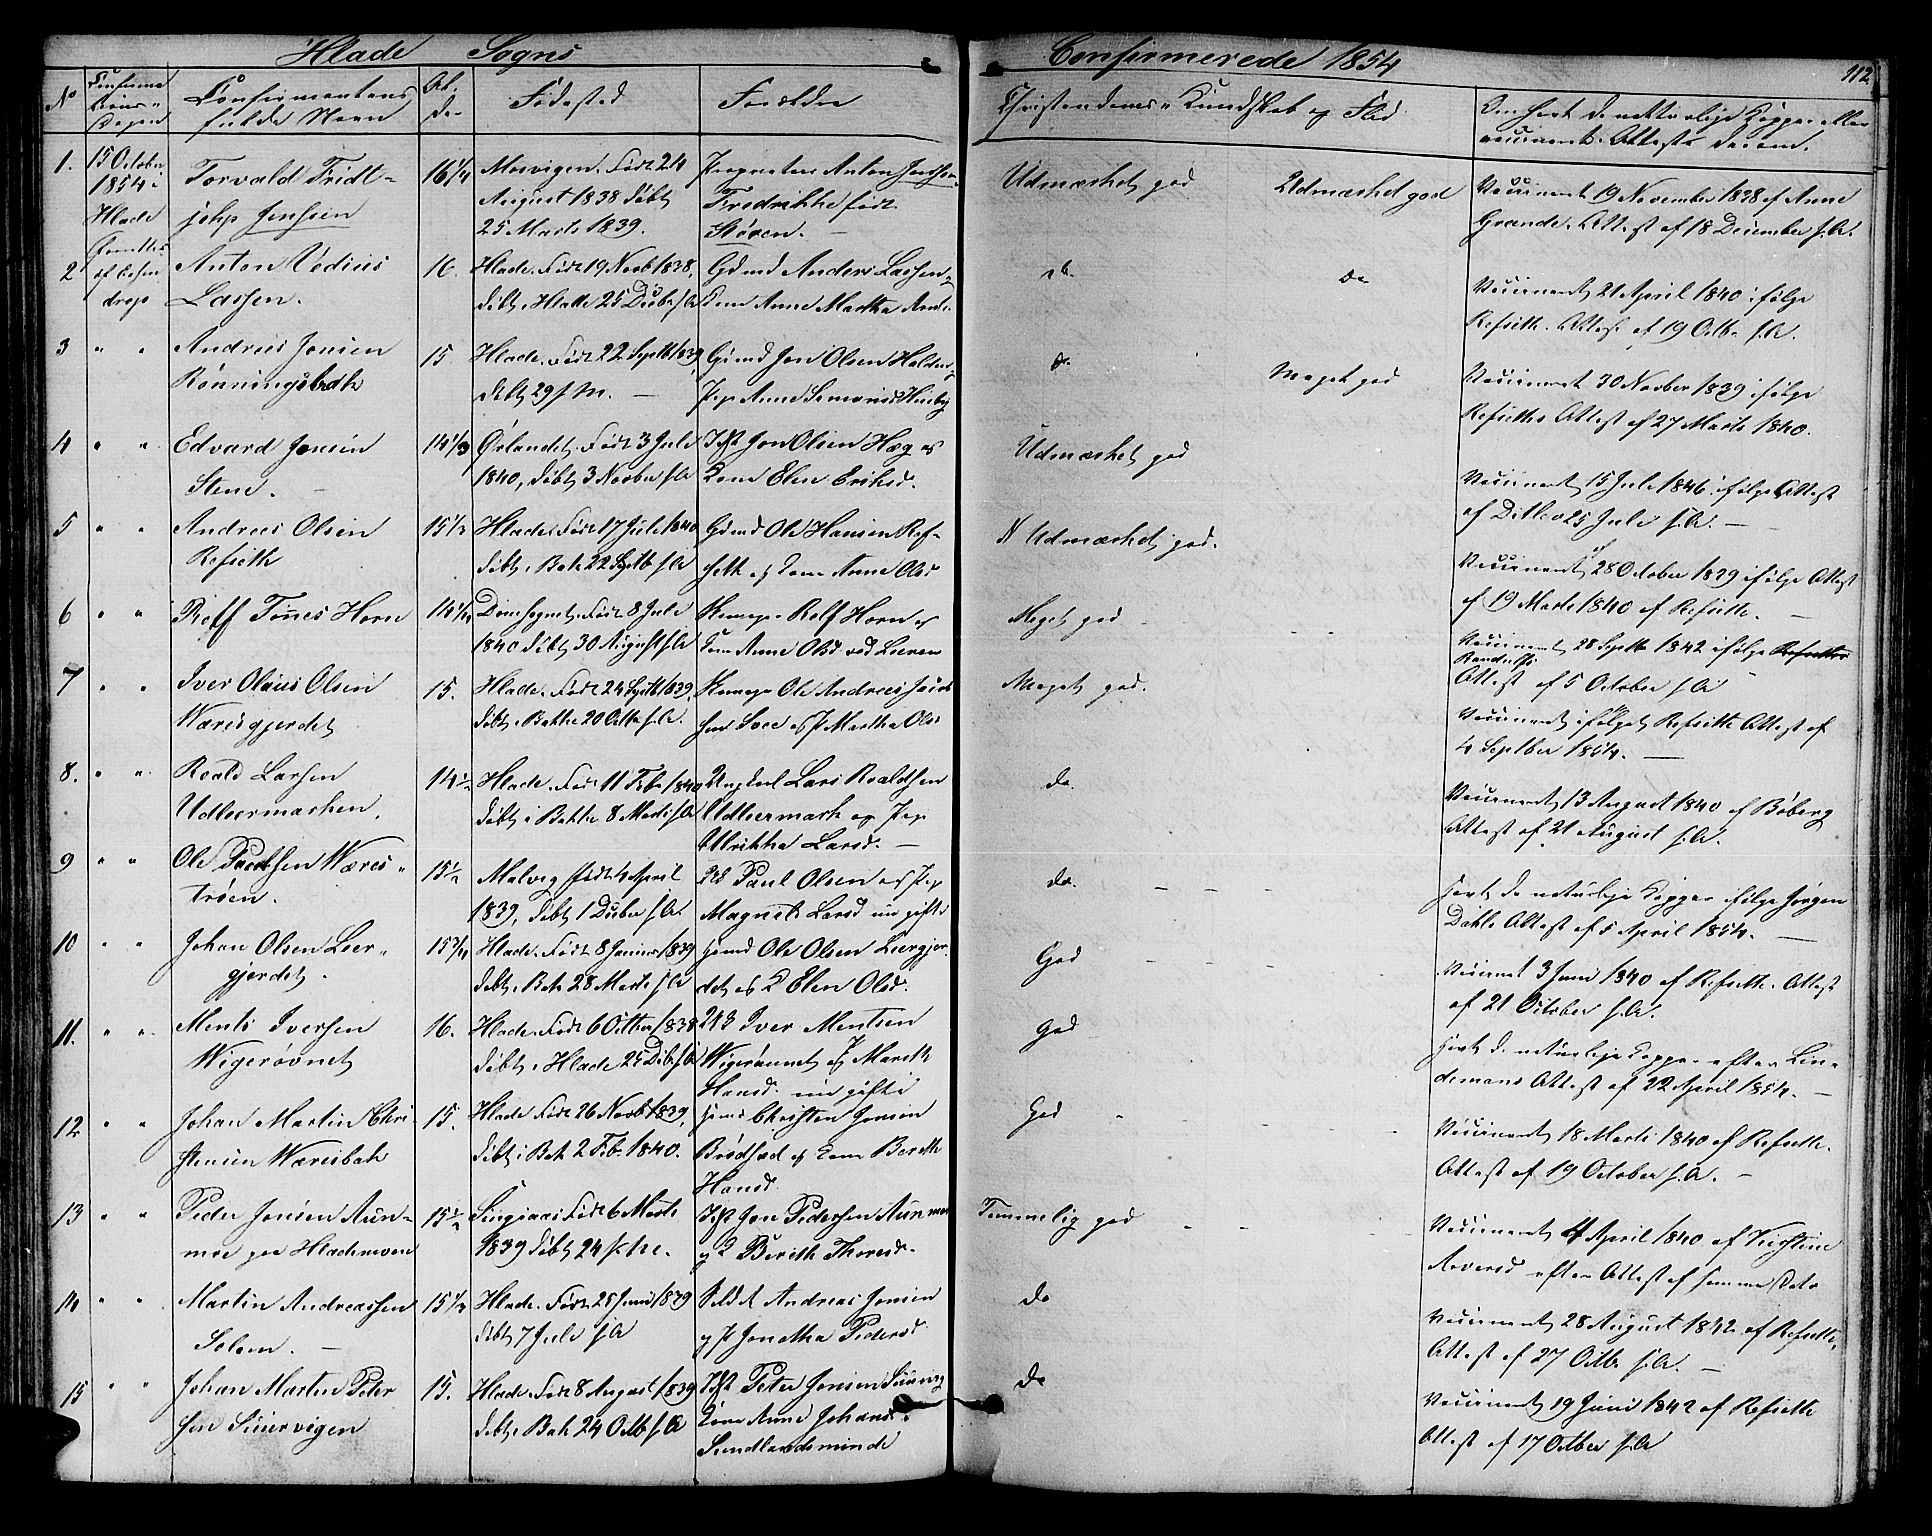 Hlade Sogns
Confirmerede 1854
112
No
Confirma
tions-
Dagen
Confirmantens
fulde Navn
Al-
der
Fødested
Forældre
Christendoms-Kundskab og Flid
Om havt de naturlige Kopper eller
vaccineret. Attests Datum.
1.
15 October
1854 i
Hlade
Torvald Fridt-
jehp Jensen
16 1/4
Mosvigen. Født 24
August 1838 døbt
25 Marts 1839.
Proprietær Anton Jenssen
Fredrikke født
Støren.
Udmærket god
Udmærket god
Vaccineret 19 November 1838 af Anne
Grande. Attest af 18 December s.A.
2
Anton Vedius
Lassen.
16.
Hlade. Født 19 Novb 1838,
døbt i Hlade 25 Decbr s.A
Gdmd Anders Lassen
Kone Anne Martha
do
do
Vaccineret 21 April 1840 ifølge
Refseth. Attest af 19 Octbr s.A.
3 " "
Andreas Jonsen
Rönningsbak
15
Hlade. Født 22 Septb 1839,
døbt 29 s.M.
Gdmd Jon Olsen
Pige Anne Simonsd
do
Meget god
Vaccineret 30 Novber 1839 ifølge
Refseths Attest af 27 Marts 1840.
4 " "
Edvard Jonsen
Stene.
14 1/3
Ørlandet. Født 3 Juli
1840, døbt 3 Novber s.A
Jon Olsen Hæg og
Kone Elen Eriksd.
Udmærket god
Vaccineret 15 Juli 1846 ifølge Attest
af Ditlev 25 Juli s.A.
5 " "
Andreas Olsen
Refseth
15 1/4
Hlade. Født 17 Juli 1840
døbt i Bak 22 Septb s.A
Gdmd Ole Hansen Ref-
seth og Kone Anne Olsd
Udmærket god.
Vaccineret 28 October 1839 ifølge Attest
af 19 Marts 1840 af Refseth.
6 " "
Roff Tönnes Horn
14 1/4
Domsognet. Født 8 Juli
1840 døbt 30 August s.A
Rolf Horn og
Kone Anne Olsd ved Leeren
Meget god
Vaccineret 28 Septb 1842 ifølge Refseths
Randulfs
Attest af 5 October s.A
7 " "
Iver Olaus Olsen
Wæresgjerdet
15.
Hlade. Født 24 Septb 1839,
døbt i Bakke 20 Octbr s.A.
Ole Andreas Jacob
sen og P Martha Olsd
Meget god.
Vaccineret ifølge Refseth Attest af
4 Septber 1854.
8. " "
Roald Larsen
Udleermarken.
14 1/2
Hlade. Født 11 Feb 1840
døbt i Bakke 8 Marts s.A
Ungkarl Lars Roaldsen
Udleermark og Pige
Ulrikka Larsd.
do
Vaccineret 13 August 1840 af Boberg
Attest af 21 August s.A.
9 " "
Ole Paulsen Wæres-
trøen.
15 1/2
Malvig født 4 April
1839, døbt 1 Decber s.A.
Paul Olsen og Pige
Magnil Larsd nu gifte
do.
Havt de naturlige Kopper ifølge Jørgen
Dahls Attest af 5 April 1854.
10 " "
Johan Olsen Leer-
gjerdet.
15 3/4
Hlade. Født 8 Januar 1839
døbt i Bak 28 Marts s.A
Gdmd Ole Olsen Leergjer
det og K Elen Olsd.
God
Vaccineret 3 Juni 1840 af Refseth. Attest
af 21 October s.A.
11. " "
Ments Iversen
Wigerøvnet
16.
Hlade. Født 6 Octbr 1838
døbt i Hlade 25 Decb s.A
Iver Mentsen
Wigerøvnet og P Mareth
Hansd. nu gifte
God
Havt de naturlige Kopper efter Lin-
demans Attest af 22 April 1854.
12. " "
Johan Martin Chri-
stensen Wæresbak
15.
Hlade Født 26 Novb 1839,
døbt i Bak 2 Feb. 1840.
Gdmd Christen Jonsen
og Kone Bereth
Hansd
God
Vaccineret 18 Marts 1840 af Refseth.
Attest af 19 October s.A.
13 " "
Peder Jonsen Aun-
moe paa Hlademoen
15 1/2
Singsaas Født 6 Marts
1839 døbt 24 s.M.
Jon Pedersen Aunmo
og K Bereth Thoresd.
Temmelig god
Vaccineret 4 April 1840 af Kirstine
efter Attest af samme Dato
14 " "
Martin Andreassen
Solem.
15 1/3
Hlade. Født 25 Juni 1839
døbt 7 Juli s.A
Andreas Jonsen
og P Jonetha Pedersd
do
Vaccineret 28 August 1842 af Refseth,
Attest af 27 Octbr s.A.
15 " "
Johan Martin Peter
sen
15.
Hlade. Født 8 August 1839
døbt i Bak 24 Octb s.A
Peter Jonsen
Kone Anne Johansd.
Sundlandsminde
do
Vaccineret 19 Juni 1842 af Refseth
Attest af 17 Octber s.A